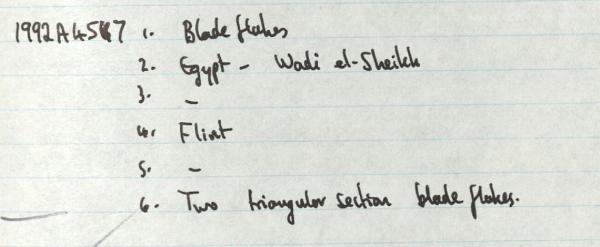 1992A4547 1. Blade flakes
2. Egypt - Wadi el-Sheikh
3. -
4. Flint
5. -
6. Two triangular section blade flakes.